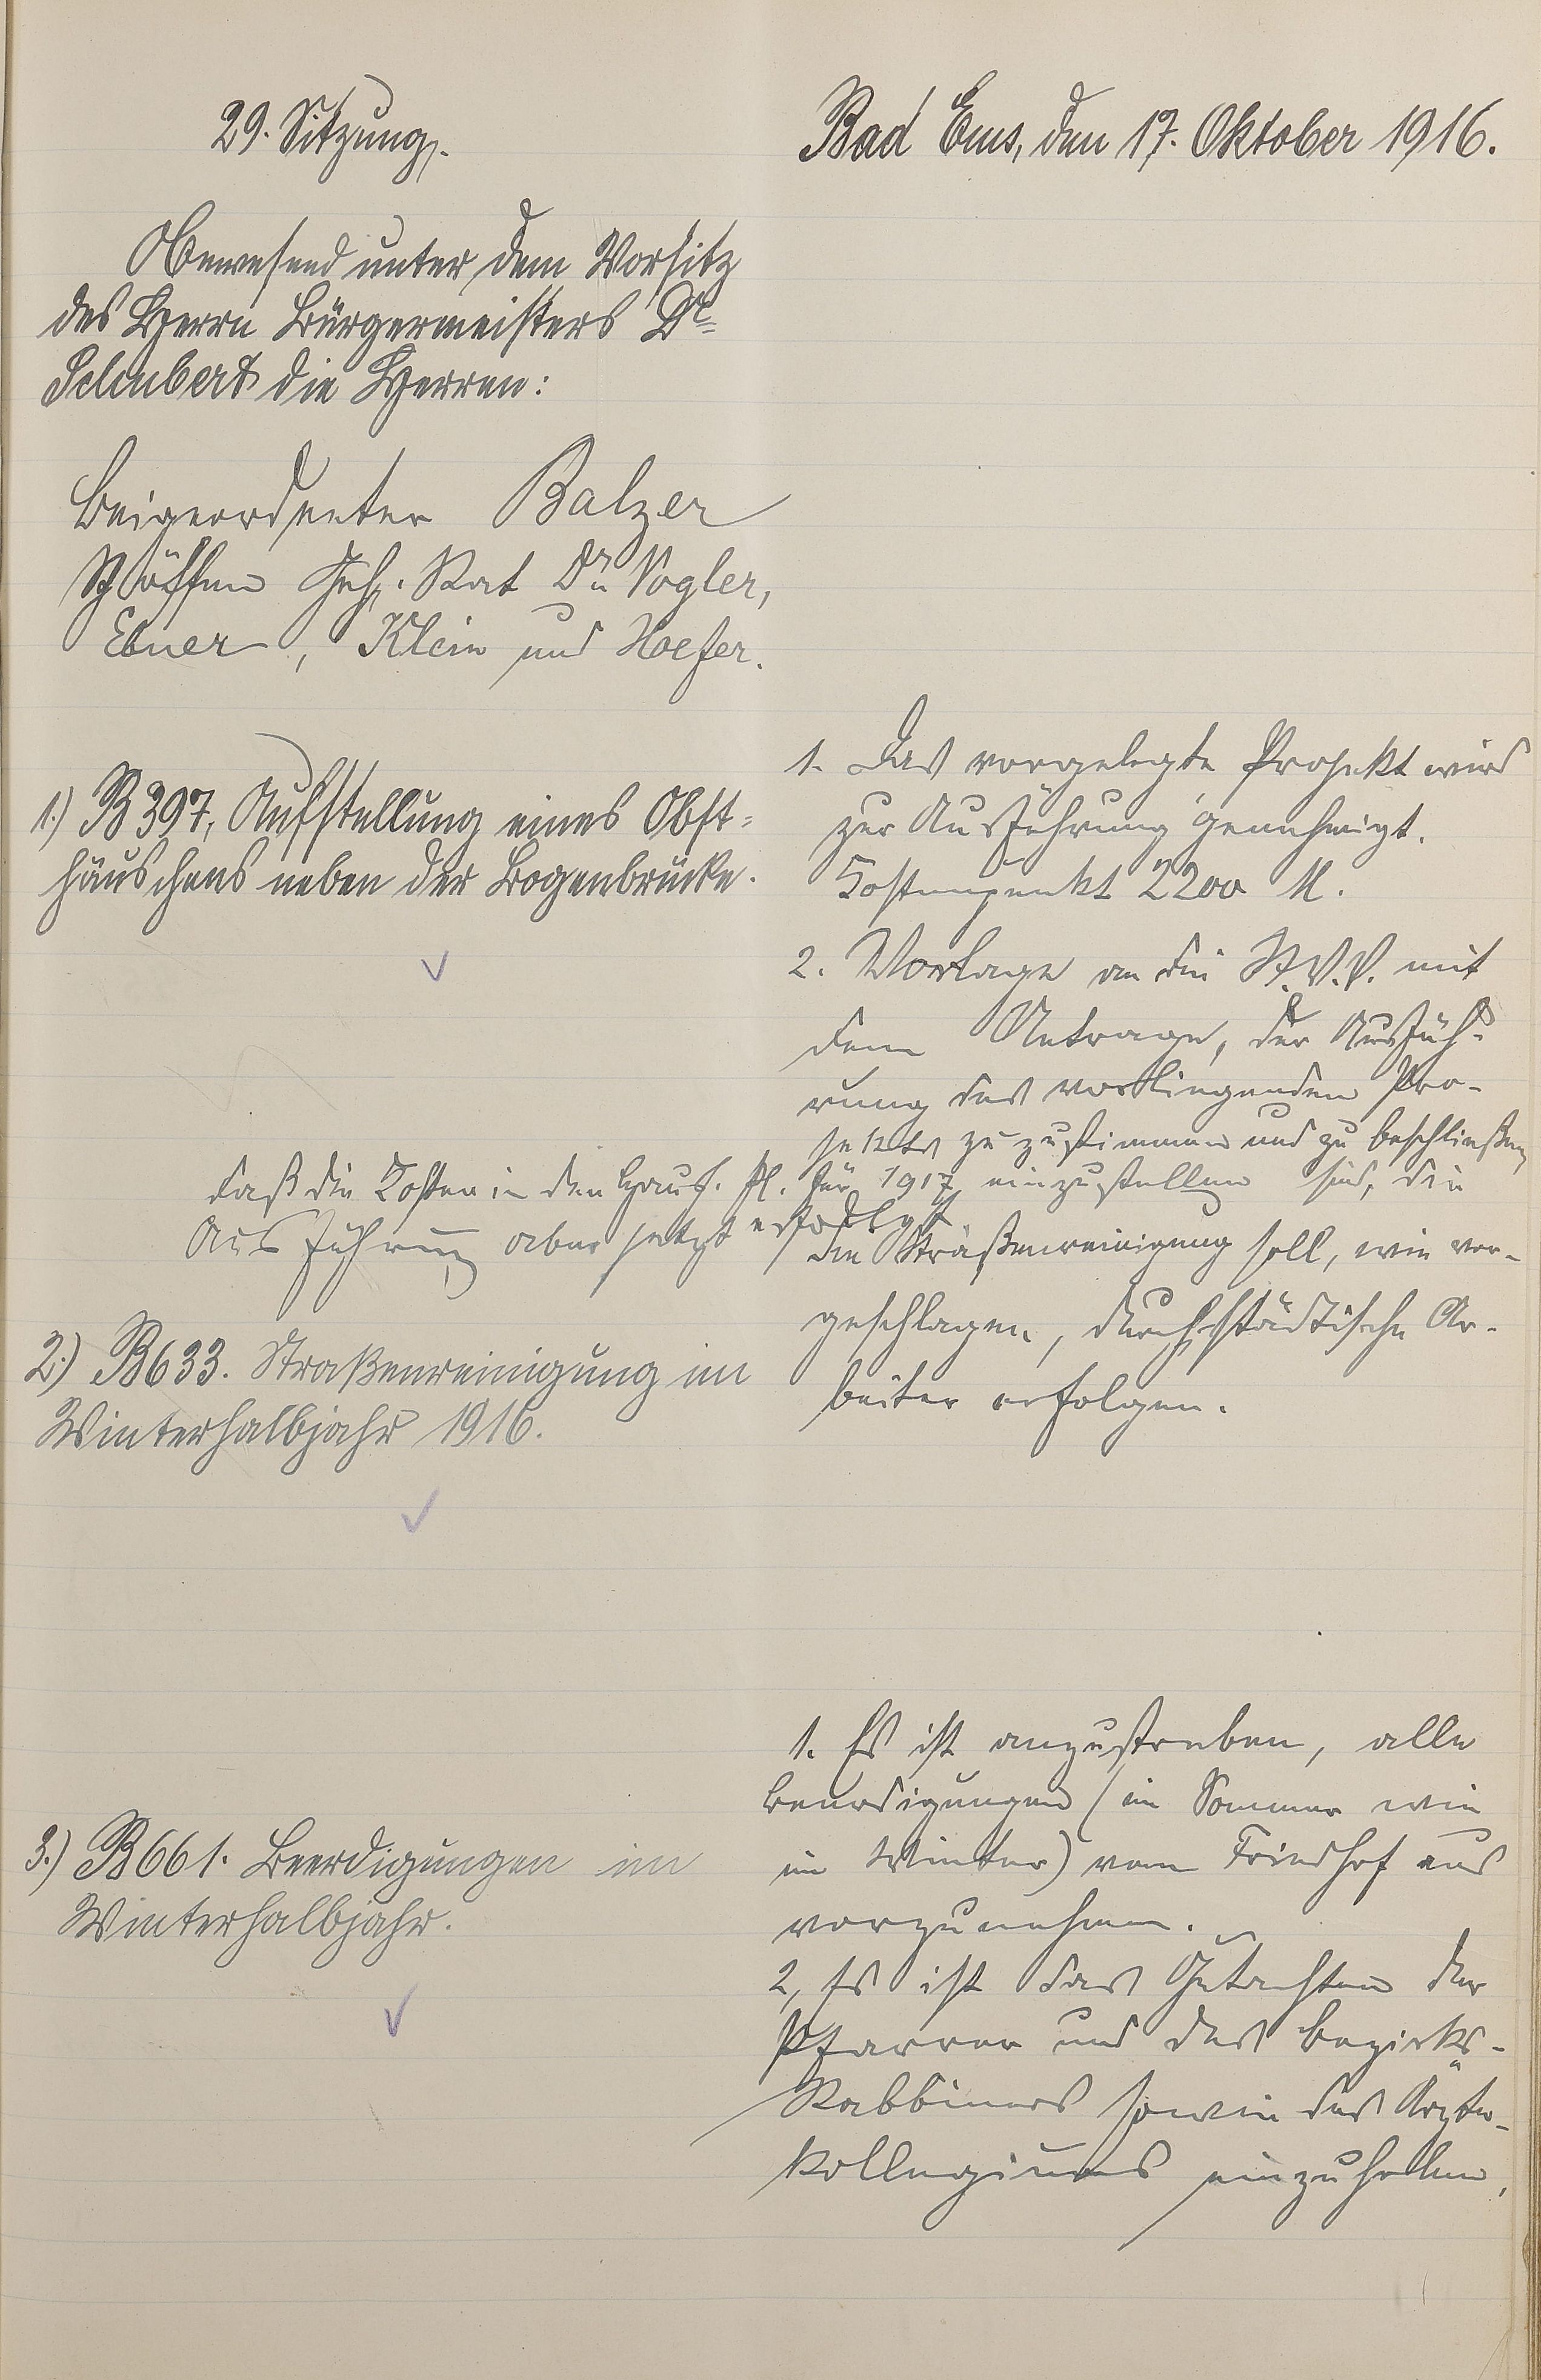 29. Sitzung.
Bad Ems, den 17. Oktober 1916.
Anwesend unter dem Vorsitz
des Herrn Bürgermeisters Dr.
Schubert die Herren:
Beigeordneter Balzer
Schöffen Geh. Rat Dr. Vogler,
Ebner, Klein und Hoefer.
1.) B 397, Aufstellung eines Obst-
häuschens neben der Bogenbrücke.
1. Das vorgelegte Projekt wird
zur Ausführung genehmigt.
Kostenpunkt 2200 M.
2. Vorlage an die St.V.V. mit
dem Antrage, der Ausfüh-
rung des vorliegenden Pro-
jekts zuzustimmen und zu beschließen
daß die Kosten in den Haush. Pl. für 1917 einzustellen sind, die
Ausführung aber jetzt erfolgt.
2.) B 633. Straßenreinigung im
Winterhalbjahr 1916.
Die Straßenreinigung soll, wie vor-
geschlagen, durch städtische Ar-
beiter erfolgen.
3.) B 661. Beerdigungen im
Winterhalbjahr.
1. Es ist anzustreben, alle
Beerdigungen (im Sommer wie
im Winter) vom Friedhof aus
vorzunehmen.
2, Es ist das Gutachten der
Pfarrer und des Bezirks-
Rabbiners sowie des Ärzte-
kollegiums einzuholen,